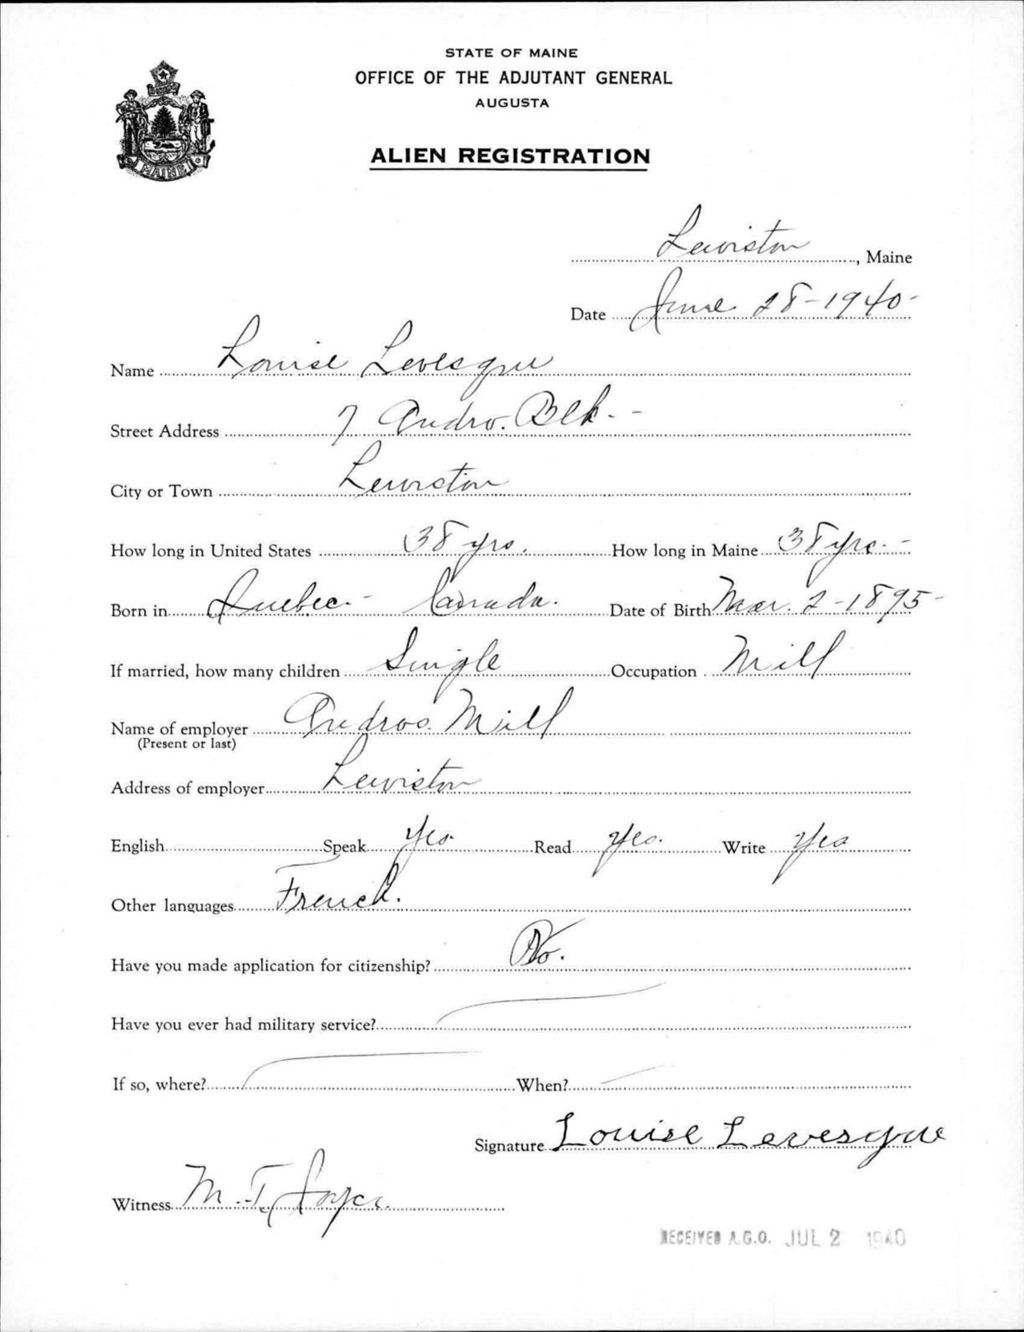 STATE OF MAINE
OFFICE OF THE ADJUTANT GENERAL
AUGUSTA
ALIEN REGISTRATION
MAINE
Lewiston, Maine
Date June 28-1940-
Name Louise Levesque
Street Address 7 Andro. Blk.-
City or Town Lewiston
How long in United States 38 yrs. How long in Maine 38 yrs.-
Born in Quebec.- Canada. Date of Birth Mar. 2-1895-
If married, how many children Single Occupation Mill
Name of employer Andros. Mill
(Present or last)
Address of employer Lewiston
English Speak Yes Read Yes. Write Yes
Other languages French.
Have you made application for citizenship? No.
Have you ever had military service?
If so, where? When?
Signature Louise Levesque
Witness M. T. Joyce
RECEIVED A.G.O. JUL 2 1940